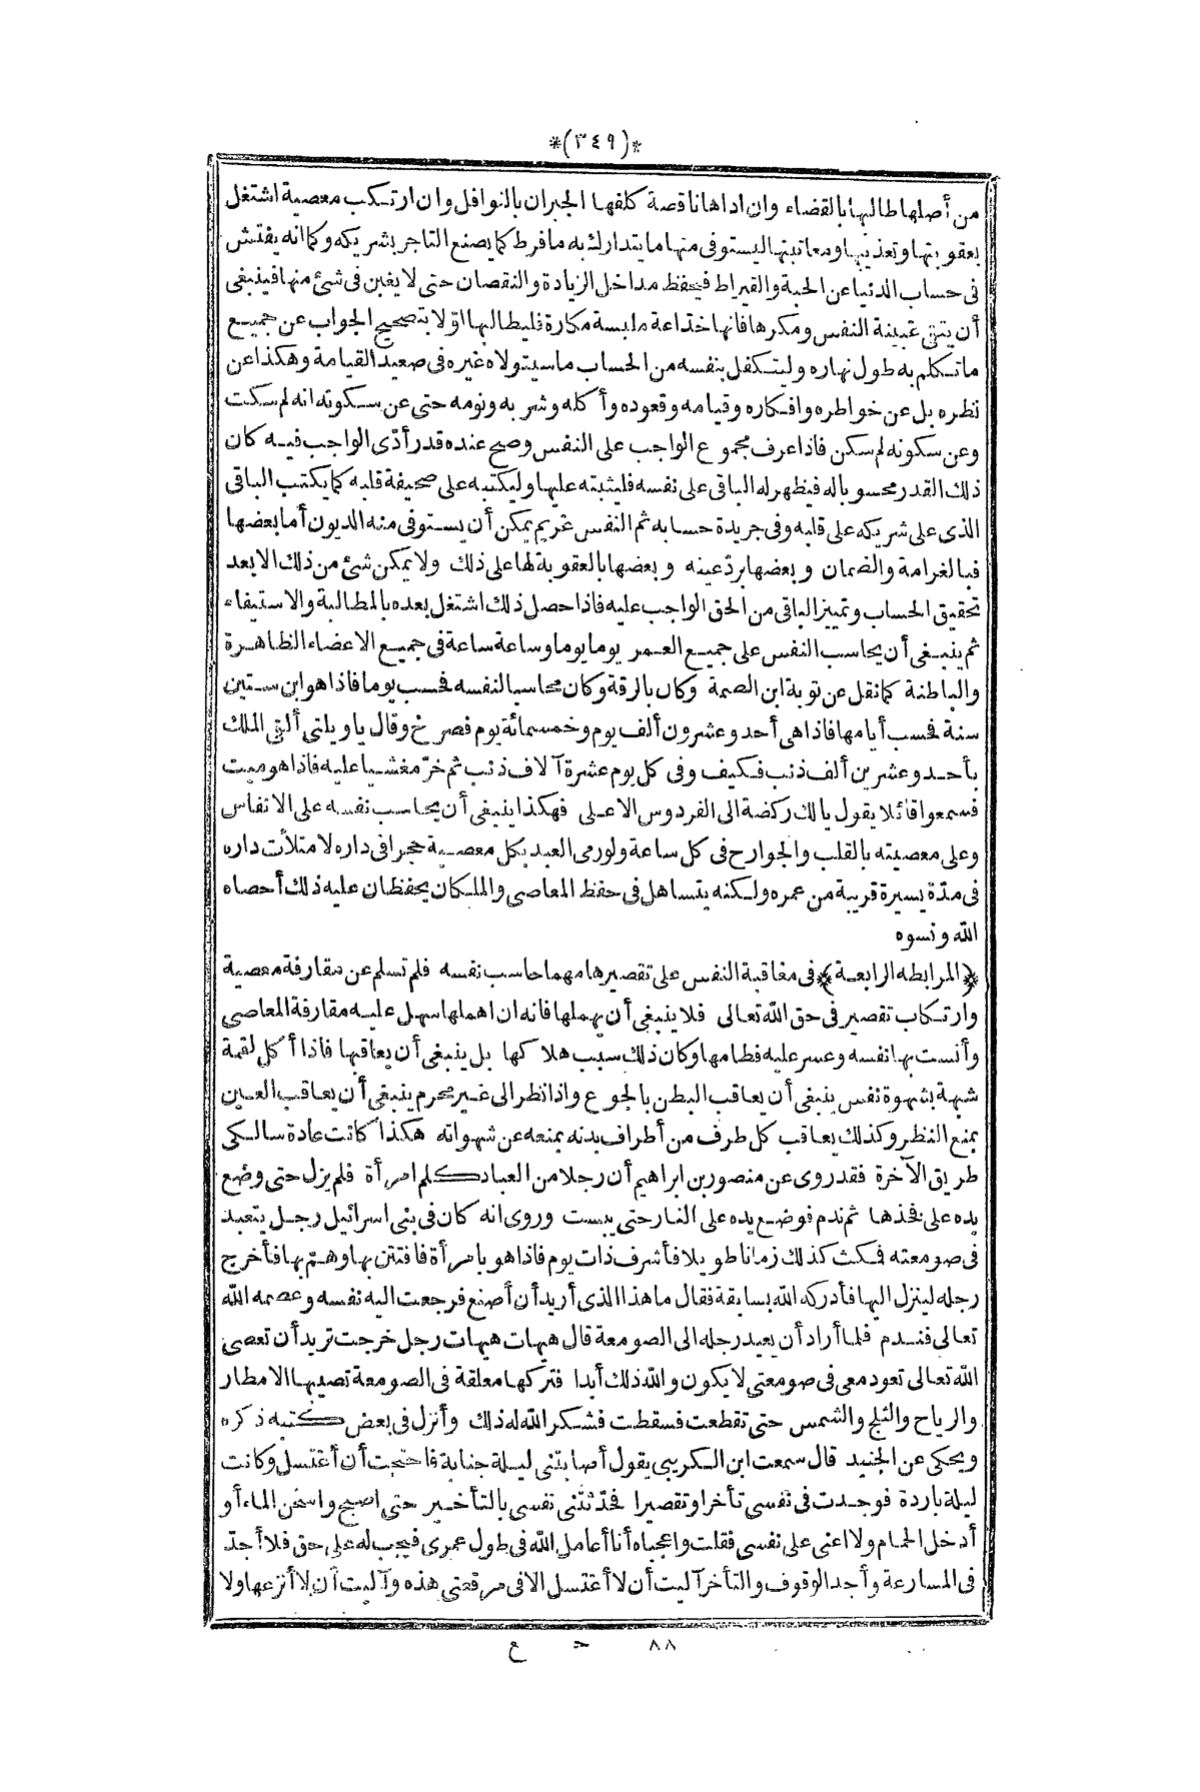 *(٣٤٩)*
من أصلها طالبها بالقضاء وان اداها ناقصة كلفها الجبران بالنوافل وان ارتكب معصية اشتغل
بعقوبتها وتعذيبها ومعاتبتها ليستوفى منها ما يتدارك به ما فرط كما يصنع التاجر بشريكه وكما انه يفتش
فى حساب الدنيا عن الحبة والقيراط فيحفظ مداخل الزيادة والنقصان حتى لا يغبن فى شئ منها فينبغى
أن يتقى غبينة النفس ومكرها فانها خداعة ملبسة مكارة فليطالبها اوّلا بتصحيح الجواب عن جميع
ما تكلم به طول نهاره وليتكفل بنفسه من الحساب ما سيتولاه غيره فى صعيد القيامة وهكذا عن
نظره بل عن خواطره وافكاره وقيامه وقعوده وأكله وشربه ونومه حتى عن سكوته انه لم سكت
وعن سكونه لم سكن فاذا عرف مجموع الواجب على النفس وصح عنده قدر أدّى الواجب فيه كان
ذلك القدر محسوبا له فيظهر له الباقى على نفسه فليثبته عليها وليكتبه على صحيفة قلبه كما يكتب الباقى
الذى على شريكه على قلبه وفى جريدة حسابه ثم النفس غريم يمكن أن يستوفى منه الديون أما بعضها
فبالغرامة والضمان وبعضها بردّ عينه وبعضها بالعقوبة لها على ذلك ولا يمكن شئ من ذلك الا بعد
تحقيق الحساب وتمييز الباقى من الحق الواجب عليه فاذا حصل ذلك اشتغل بعده بالمطالبة والاستيفاء
ثم ينبغى أن يحاسب النفس على جميع العمر يوما يوما وساعة ساعة فى جميع الاعضاء الظاهرة
والباطنة كما نقل عن توبة ابن الصمة وكان بالرقة وكان محاسبا لنفسه فحسب يوما فاذا هو ابن ستين
سنة فحسب أيامها فاذا هى أحد وعشرون ألف يوم وخمسمائة يوم فصرخ وقال يا ويلتى ألقى الملك
بأحد وعشرين ألف ذنب فكيف وفى كل يوم عشرة آلاف ذنب ثم خرّ مغشيا عليه فاذا هو ميت
فسمعوا قائلا يقول يا لك ركضة الى الفردوس الاعلى فهكذا ينبغى أن يحاسب نفسه على الانفاس
وعلى معصيته بالقلب والجوارح فى كل ساعة ولو رمى العبد بكل معصية حجرا فى داره لامتلأت داره
فى مدّة يسيرة قريبة من عمره ولكنه يتساهل فى حفظ المعاصى والملكان يحفظان عليه ذلك أحصاه
الله ونسوه
﴿المرابطه الرابعة﴾ فى مفاقبة النفس على تقصيرها مهما حاسب نفسه فلم تسلم عن مقارفة معصية
وارتكاب تقصير فى حق الله تعالى فلا ينبغى أن يهملها فانه ان اهملها سهل عليه مقارفة المعاصى
وأنست بها نفسه وعسر عليه فطامها وكان ذلك سبب هلاكها بل ينبغى أن يعاقبها فاذا أكل لقمة
شبهة بشهوة نفس ينبغى أن يعاقب البطن بالجوع واذا نظر الى غير محرم ينبغى أن يعاقب العين
بمنع النظر وكذلك يعاقب كل طرف من أطراف بدنه بمنعه عن شهواته هكذا كانت عادة سالكى
طريق الآخرة فقد روى عن منصور بن ابراهيم أن رجلا من العباد كلم امرأة فلم يزل حتى وضع
يده على فخذها ثم ندم فوضع يده على النار حتى يبست وروى انه كان فى بنى اسرائيل رجل يتعبد
فى صومعته فمكث كذلك زمانا طويلا فأشرف ذات يوم فاذا هو بامرأة فافتتن بها وهمّ بها فأخرج
رجله لينزل اليها فأدركه الله بسابقة فقال ما هذا الذى أريد أن أصنع فرجعت اليه نفسه وعصمه الله
تعالى فندم فلما أراد أن يعيد رجله الى الصومعة قال هيهات هيهات رجل خرجت تريد أن تعصى
الله تعالى تعود معى فى صومعتى لا يكون والله ذلك أبدا فتركها معلقة فى الصومعة تصيبها الامطار
والرياح والثلج والشمس حتى تقطعت فسقطت فشكر الله له ذلك وأنزل فى بعض كتبه ذكره
ويحكى عن الجنيد قال سمعت ابن الكريبى يقول أصابتنى ليلة جنابة فاحتجت أن أغتسل وكانت
ليلة باردة فوجدت فى نفسى تأخرا وتقصيرا فحدّثتنى نفسى بالتأخير حتى اصبح واسخن الماء أو
أدخل الحمام ولا اعنى على نفسى فقلت واعجباه أنا أعامل الله فى طول عمرى فيجب له على حق فلا أجد
فى المسارعة وأجد الوقوف والتأخر آليت أن لا أغتسل الا فى مرقعتى هذه وآليت أن لا أنزعها ولا
٨٨ حـ ع